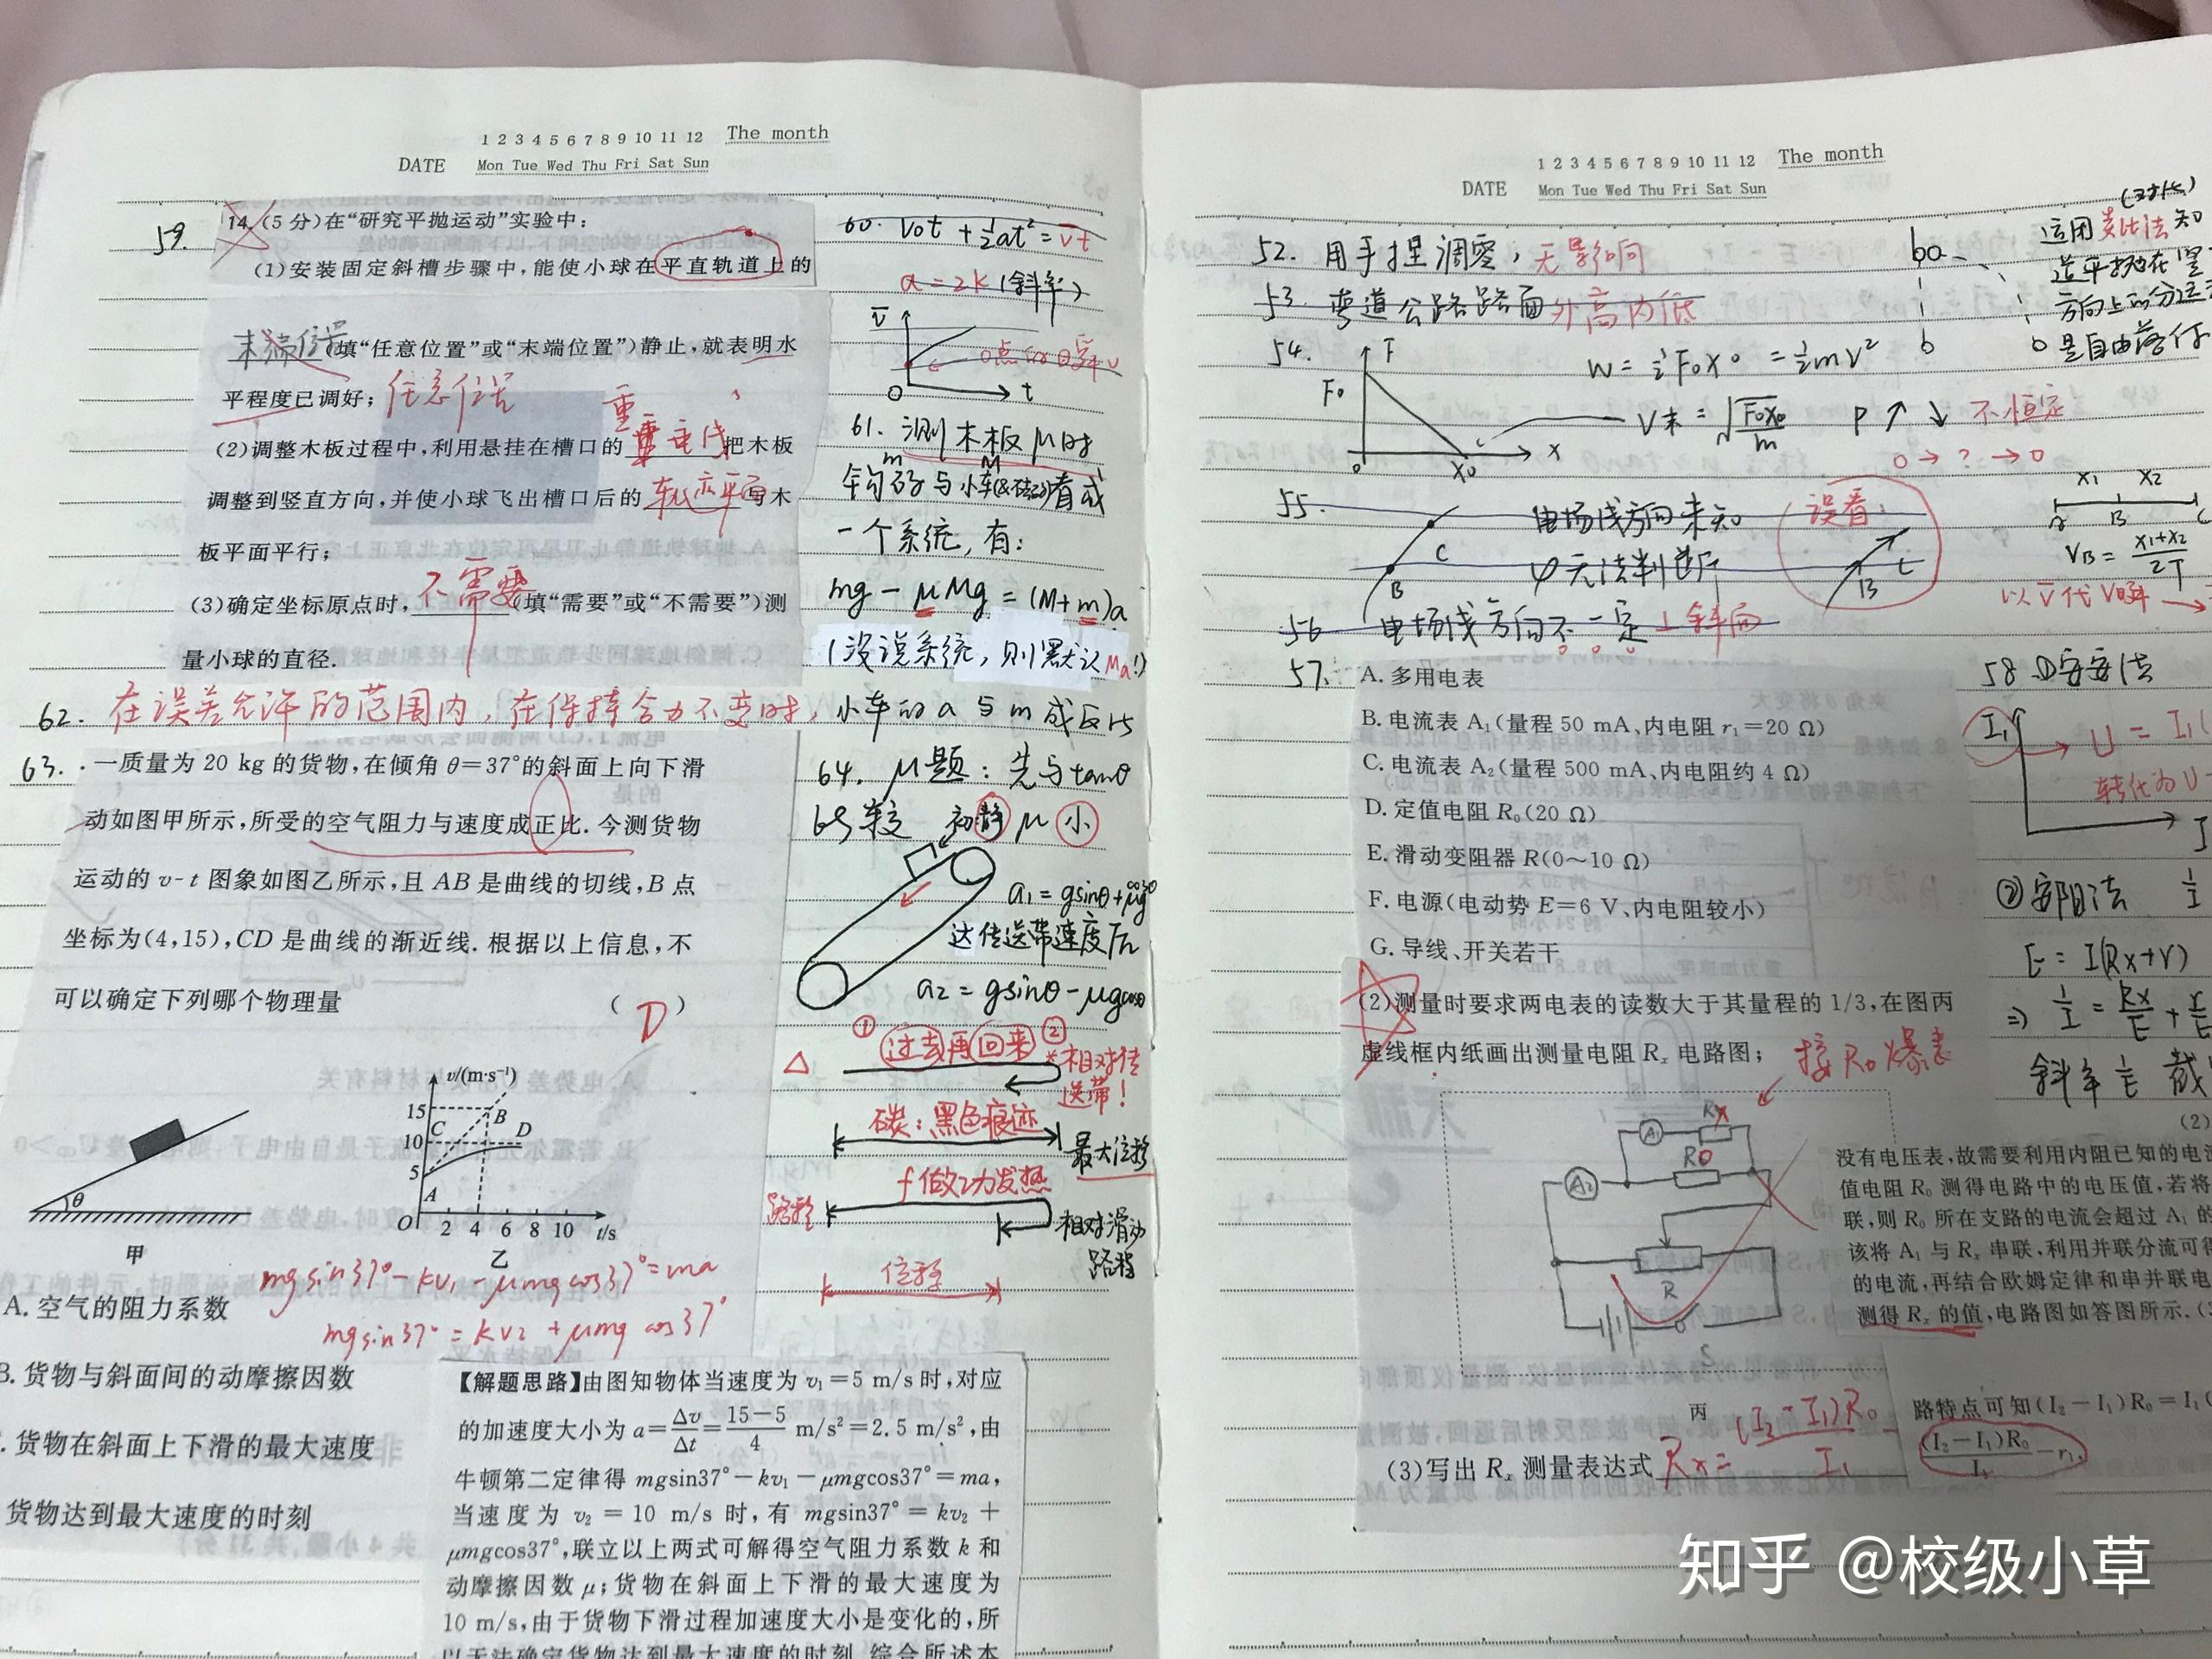 1 2 3 4 5 6 7 8 9 10 11 12 The month
DATE Mon Tue Wed Thu Fri Sat Sun
59. 14.(5分)在“研究平抛运动”实验中:
(1)安装固定斜槽步骤中,能使小球在平直轨道上的
末端位置(填“任意位置”或“末端位置”)静止,就表明水
平程度已调好; 任意位置
重
(2)调整木板过程中,利用悬挂在槽口的重垂线把木板
调整到竖直方向,并使小球飞出槽口后的轨迹平面与木
板平面平行;
(3)确定坐标原点时,不需要(填“需要”或“不需要”)测
量小球的直径.
60. v₀t + ½at² = v̄t
a = 2k (斜率)
v̄
O t
61. 测木板μ时
m M
钩码与小车看成
一个系统,有:
mg - μMg = (M+m)a
(没说系统,则默认Ma!)
62. 在误差允许的范围内,在保持合力不变时,小车的a与m成反比
63. 一质量为 20 kg 的货物,在倾角 θ=37°的斜面上向下滑
动如图甲所示,所受的空气阻力与速度成正比.今测货物
运动的 v-t 图象如图乙所示,且 AB 是曲线的切线,B 点
坐标为(4,15),CD 是曲线的渐近线.根据以上信息,不
可以确定下列哪个物理量 ( D )
θ
甲
v/(m·s⁻¹)
15 B
C D
10
5
A
O 2 4 6 8 10 t/s
乙
mgsin37° - kv₁ - μmgcos37° = ma
A. 空气的阻力系数
mgsin37° = kv₂ + μmgcos37°
B. 货物与斜面间的动摩擦因数
. 货物在斜面上下滑的最大速度
货物达到最大速度的时刻
【解题思路】由图知物体当速度为 v₁=5 m/s 时,对应
的加速度大小为 a=Δv/Δt=(15-5)/4 m/s²=2.5 m/s²,由
牛顿第二定律得 mgsin37°-kv₁-μmgcos37°=ma,
当速度为 v₂ = 10 m/s 时,有 mgsin37° = kv₂ +
μmgcos37°,联立以上两式可解得空气阻力系数 k 和
动摩擦因数 μ;货物在斜面上下滑的最大速度为
10 m/s,由于货物下滑过程加速度大小是变化的,所
以无法确定货物达到最大速度的时刻.综合所述本
64. μ题: 先与tanθ
65 较 初静 μ 小
a₁ = gsinθ + μgcosθ
达传送带速度后
a₂ = gsinθ - μgcosθ
① 过去再回来 ②
△ *相对传
送带!
碳:黑色痕迹
最大位移
f做功发热
路程 相对滑动
路程
位移
1 2 3 4 5 6 7 8 9 10 11 12 The month
DATE Mon Tue Wed Thu Fri Sat Sun
52. 用手捏调零,无影响
53. 弯道公路路面外高内低
54. F
F₀
0 x₀ x
W = ½F₀x₀ = ½mv²
v末 = √(F₀x₀/m) P ↑ ↓ 不恒定
0 → ? → 0
55. 电场线方向未知
φ无法判断
B C
误看:
B C
56 电场线方向不一定⊥斜面
运用类比法知
道平抛在竖
方向上的分运
是自由落体
x₁ x₂
B C
v_B = (x₁+x₂)/2T
以v̄代v瞬 →
57. A. 多用电表
B. 电流表 A₁(量程 50 mA、内电阻 r₁=20 Ω)
C. 电流表 A₂(量程 500 mA、内电阻约 4 Ω)
D. 定值电阻 R₀(20 Ω)
E. 滑动变阻器 R(0~10 Ω)
F. 电源(电动势 E=6 V、内电阻较小)
G. 导线、开关若干
(2)测量时要求两电表的读数大于其量程的 1/3,在图丙
虚线框内纸画出测量电阻 Rₓ 电路图; 接R₀爆表
A₁ Rx
R0
A₂
R
S
丙
(3)写出 Rₓ 测量表达式 Rx = (I₂-I₁)R₀/I₁
58. ①安安法
I₁ → U = I₁(
转化为U-
I
②安阻法
E = I(Rx+r)
⇒ 1/I = Rx/E + r/E
斜率 1/E 截
(2)
没有电压表,故需要利用内阻已知的电流
值电阻 R₀ 测得电路中的电压值,若将
联,则 R₀ 所在支路的电流会超过 A₁ 的
该将 A₁ 与 Rₓ 串联,利用并联分流可得
的电流,再结合欧姆定律和串并联电
测得 Rₓ 的值,电路图如答图所示.(3
路特点可知(I₂-I₁)R₀=I₁(
(I₂-I₁)R₀/I₁-r₁.
知乎 @校级小草